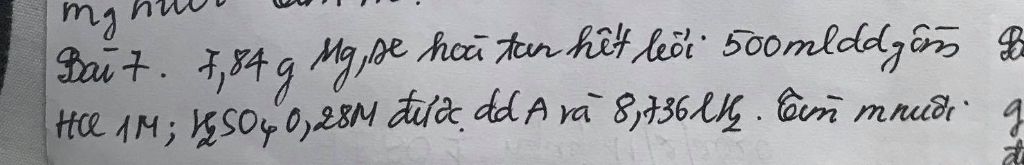 mg
Bài 7. 7,84 g Mg, Al hoà tan hết bởi 500ml dd gồm
HCl 1M; H₂SO₄ 0,28M được dd A và 8,736 l H₂. Tìm m muối